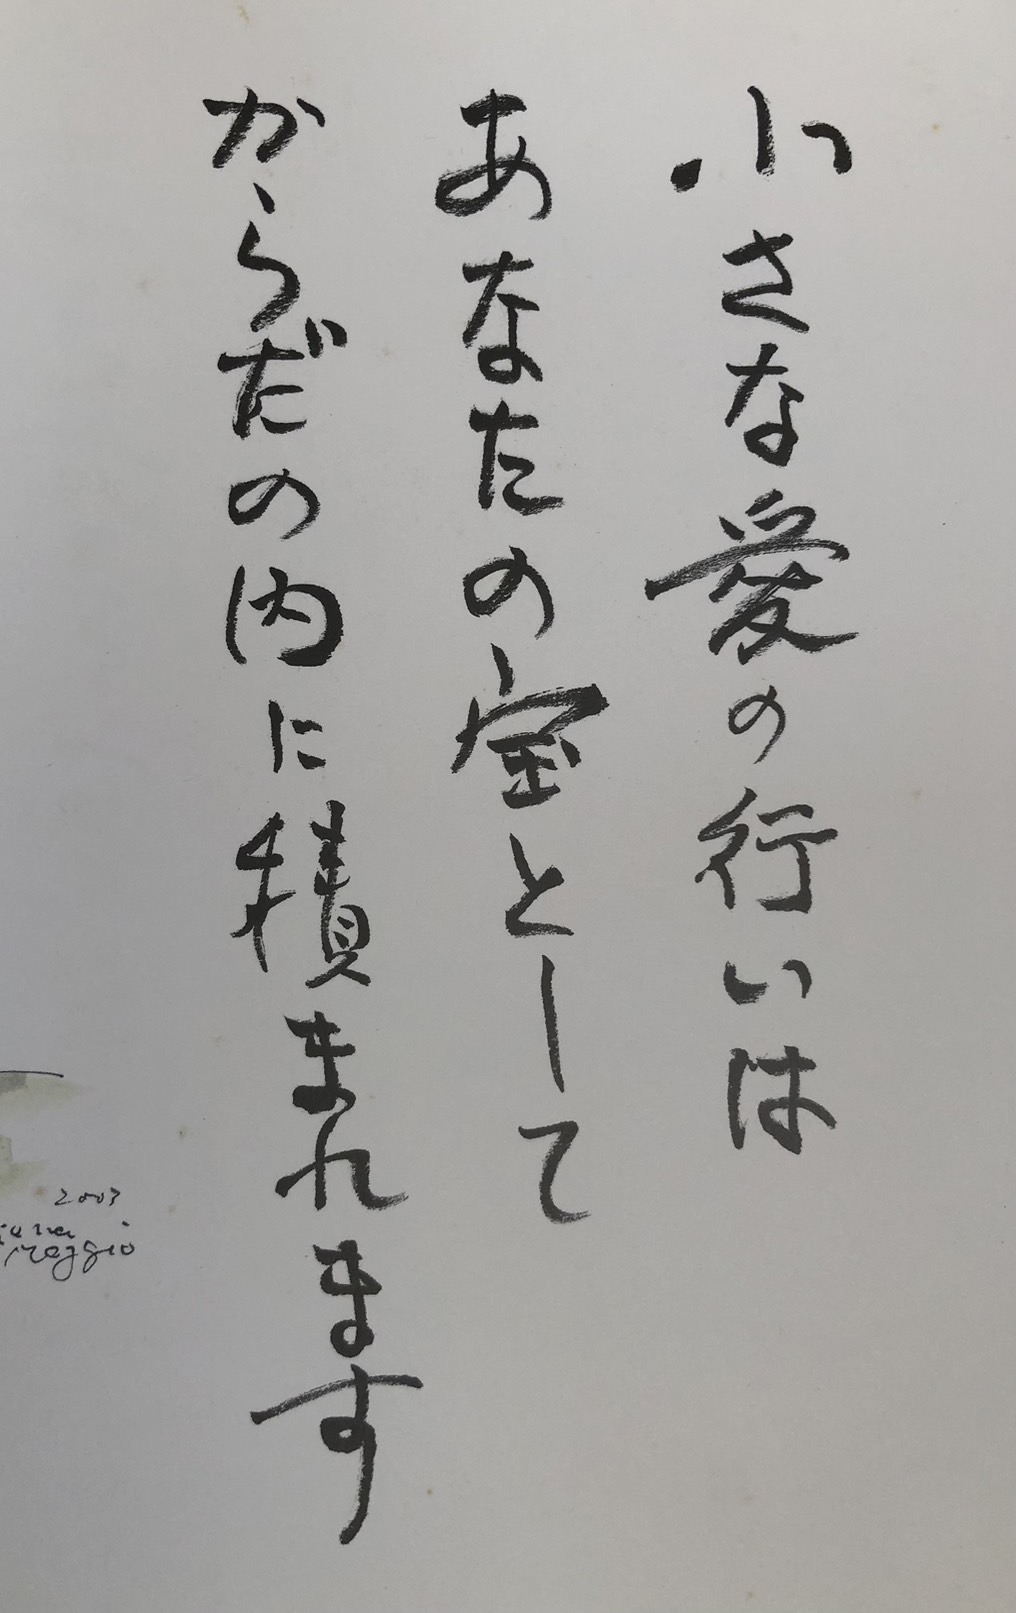 小さな愛の行いは
あなたの宝として
からだの内に積まれます
2003
maggio